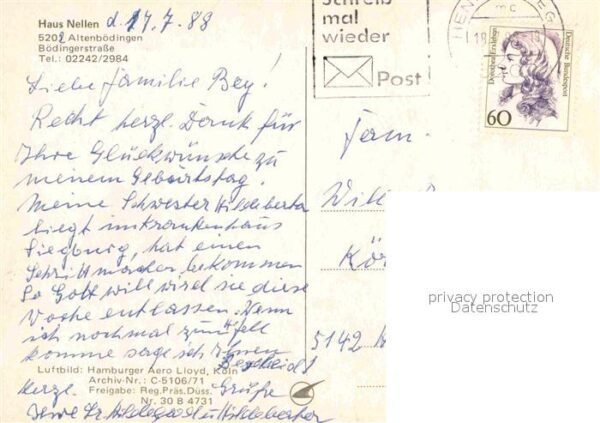 Haus Nellen d. 17.7.88
5202 Altenbödingen
Bödingerstraße
Tel.: 02242/2984
Liebe Familie Bey!
Recht herzl. Dank für
Ihre Glückwünsche zu
meinem Geburtstag.
Meine Schwester Hildeberta
liegt im Krankenhaus
Siegburg, hat einen
Schrittmacher bekommen
So Gott will wird sie diese
Woche entlassen. Wenn
ich nochmal zum
komme sage ich Ihnen
Bescheid!
Luftbild: Hamburger Aero Lloyd, Köln
Archiv-Nr.: C-5106/71
Freigabe: Reg.Präs.Düss.
Nr. 30 B 4731
Herzl. Grüße
Ihre Sr. Hildegard u Hildeberta
Schreib
mal
wieder
Post
HEN
EF
mc
18
Deutsche Bundespost
60
Fam.
Will
Kö
5142
privacy protection
Datenschutz